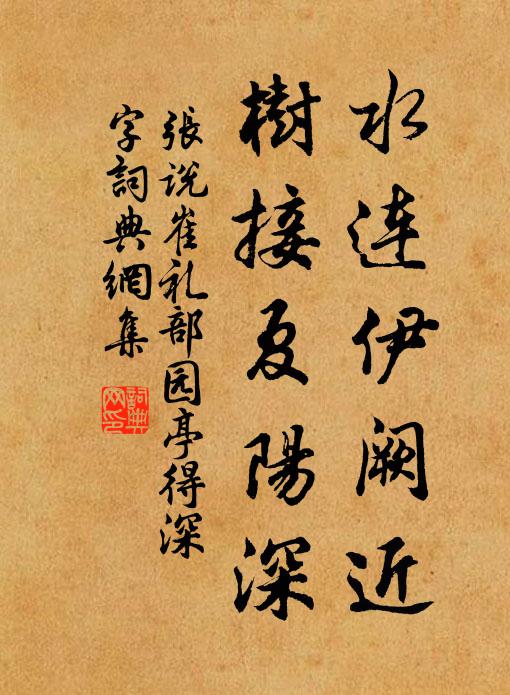 水连伊阙近
樹接夏陽深
張说崔礼部园亭得深
字詞典網集
詞典网印